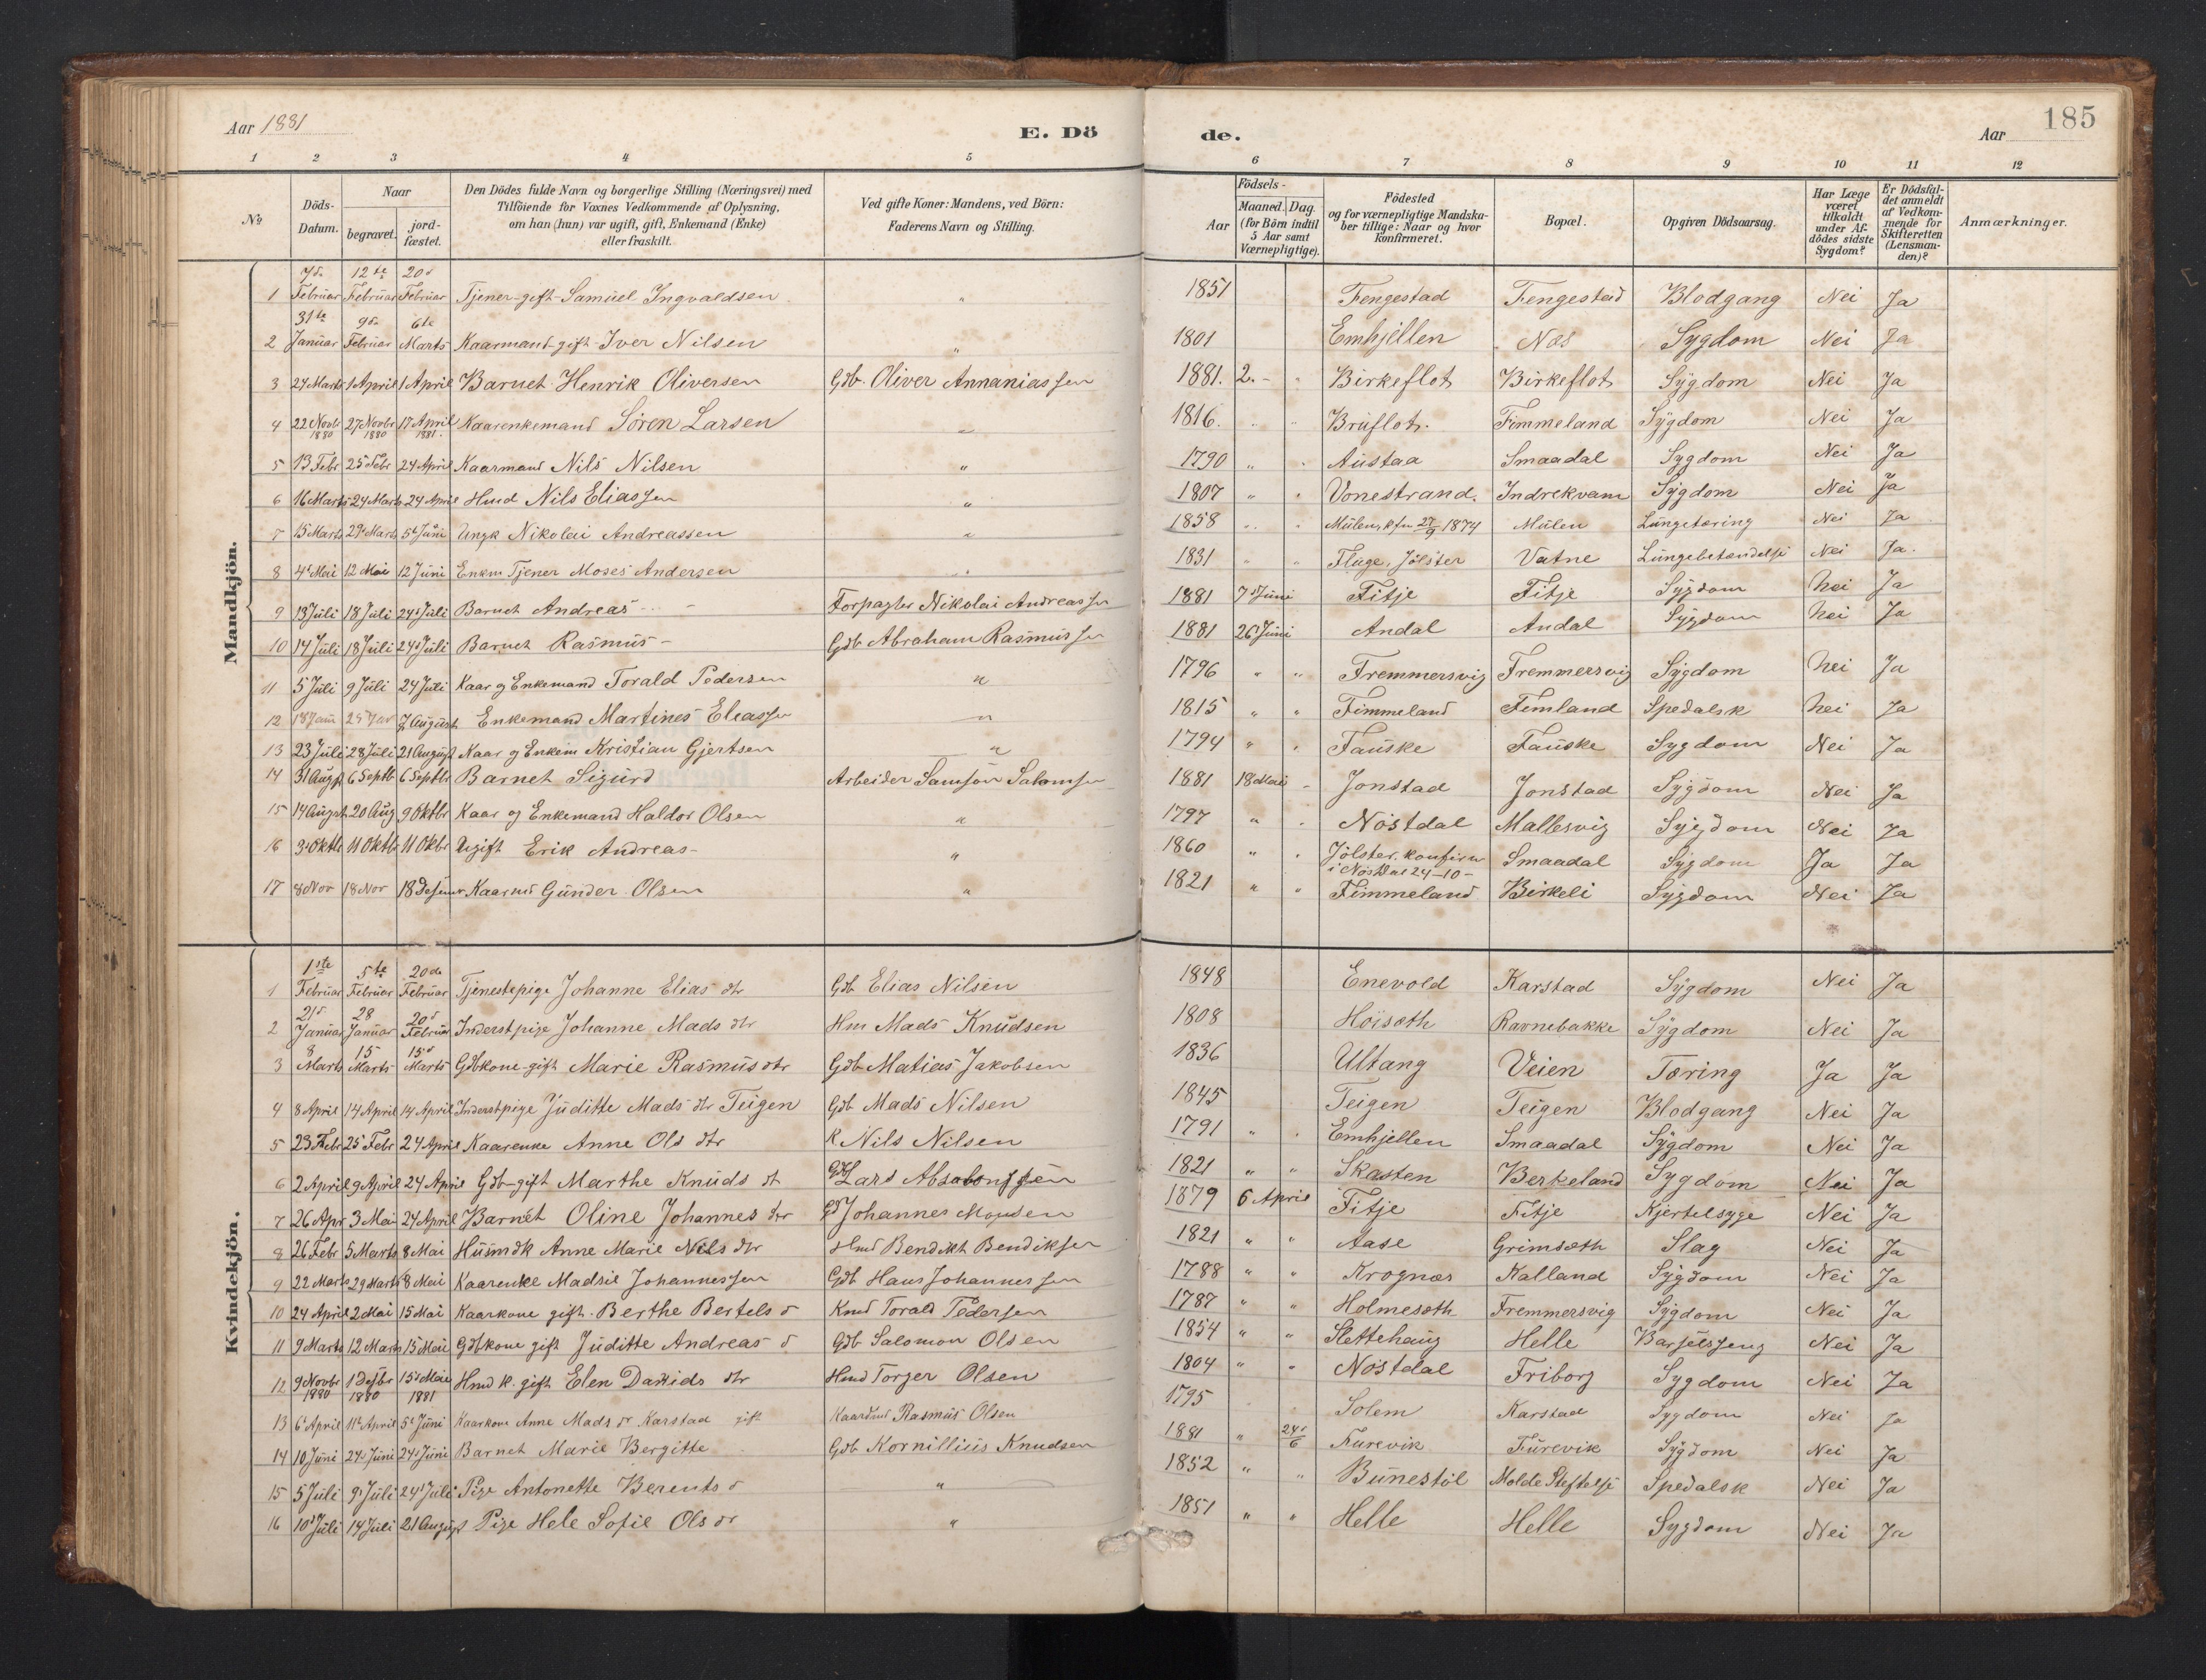 Aar 1881
E. Dö
de.
Aar
185
1 2 3 4 5 6 7 8 9 10 11 12
No
Döds-Datum.
Naar
begravet.
jord-fæstet.
Den Dödes fulde Navn og borgerlige Stilling (Næringsvei) med
Tilföiende for Voxnes Vedkommende af Oplysning,
om han (hun) var ugift, gift, Enkemand (Enke)
eller fraskilt.
Ved gifte Koner: Mandens, ved Börn:
Faderens Navn og Stilling.
Födsels-
Aar
Maaned. Dag.
(for Börn indtil
5 Aar samt
Værnepligtige).
Födested
og for værnepligtige Mandska-
ber tillige: Naar og hvor
konfirmeret.
Bopæl.
Opgiven Dödsaarsag.
Har Læge
været
tilkaldt
under Af-
dödes sidste
Sygdom?
Er Dödsfal-
det anmeldt
af Vedkom-
mende for
Skifteretten
(Lensman-
den)?
Anmærkninger.
Mandkjön.
1 7de Februar 12te Februar 20d Februar Tjener-gift-Samuel Ingvaldsen " 1851 Fengestad Fengestad Blodgang Nei Ja
2 31te Januar 9de Februar 6te Marts Kaarmand-gift-Iver Nilsen " 1801 Emhjellen Nos Sygdom Nei Ja
3 27 Marts 1 April 1 April Barnet Henrik Oliversen Gdb. Oliver Annaniassen 1881. 2.- " Birkeflot Birkeflot Sygdom Nei Ja
4 22 Novbr 1880 27 Novbr 1880 17 April 1881. Kaarenkemand Sören Larsen " 1816. " " Bruflot. Fimmeland Sygdom Nei Ja
5 13 Febr 25 Febr 24 April Kaarmand Nils Nilsen " 1790 " " Austaa Smaadal Sygdom Nei Ja
6 16 Marts 24 Marts 24 April Hmd Nils Eliassen " 1807 " " Vonestrand. Indrekvam Sygdom Nei Ja
7 15 Marts 29 Marts 5t Juni Ungk Nikolai Andreassen " 1858 " " Mulen, kfm 27/9 1874 Mulen Lungetæring Nei Ja
8 4t Mai 12 Mai 12 Juni Enkm Tjener Moses Andersen " 1831 " " Fluge, Jölster Vatne Lungebetændelse Nei Ja.
9 13 Juli 18 Juli 24d Juli Barnet Andreas Forpagter Nikolai Andreassen 1881 7d Juni Fitje Fitje Sygdom Nei Ja
10 14 Juli 18 Juli 24d Juli Barnet Rasmus Gdb Abraham Rasmussen 1881 26 Juni Andal Andal Sygdom Nei Ja
11 5 Juli 9 Juli 24 Juli Kaar og Enkemand Torald Pedersen " 1796 " " Fremmersvig Fremmersvig Sygdom Nei Ja
12 18 Jan 25 Jan 7 August Enkemand Martines Eleassen " 1815 " " Fimmeland Femland Spedalsk Nei Ja
13 23 Juli 28 Juli 21 August Kaar og Enkem Kristian Gjertsen " 1794 " " Fauske Fauske Sygdom Nei Ja
14 31 Augst 6 Septb 6 Septbr Barnet Sigurd Arbeider Samson Salomsen 1881 18 Mai Jonstad Jonstad Sygdom Nei Ja
15 14 Augst 20 Aug 9 Oktbr Kaar og Enkemand Haldor Olsen " 1797 " " Nöstdal Mallesvig Sygdom Nei Ja
16 3d Oktb 11 Oktb 11 Okbr Ugift Erik Andreas- " 1860 " " Jölster. konfirm i Nöstdal 24-10- Smaadal Sygdom Ja Ja
17 8 Nov 18 Nov 18 Desemb Kaarmd Gunder Olsen " 1821 " " Fimmeland Birkeli Sygdom Nei Ja
Kvindekjön.
1 1ste Februar 5te Februar 20de Februar Tjenestepige Johanne Elias dtr Gdb Elias Nilsen 1848 Enevold Karstad Sygdom Nei Ja
2 21d Januar 28 Januar 20d Februar Inderstpige Johanne Mads dtr Hm Mads Knudsen 1808 Hoisæth Ravnebakke Sygdom Nei Ja
3 8 Marts 15 Marts 15d Marts Gdbkone-gift Marie Rasmus dtr Gdb Matias Jakobsen 1836 Ultang Veien Tæring Ja Ja
4 8 April 14 April 14 April Inderstpige Juditte Mads dtr Teigen Gdb Mads Nilsen 1845 Teigen Teigen Blodgang Nei Ja
5 23 Febr 25 Febr 24 April Kaarenke Anne Ols dtr K. Nils Nilsen 1791 " " Emhjellen Smaadal Sygdom Nei Ja
6 2 April 9 April 24 April Gdb-gift Marthe Knuds dt Gdb Lars Absalonssen 1821 " " Skasten Berkeland Sygdom Nei Ja
7 26 Apr 3 Mai 24 April Barnet Oline Johannes dtr Johannes Monsen 1879 6 April Fitje Fitje Kjertelsyge Nei Ja
8 26 Febr 5 Marts 8 Mai Husmdk Anne Marie Nils dtr Hmd Bendikt Bendiksen 1821 " " Aase Grimsæth Slag Nei Ja
9 22 Marts 29 Marts 8 Mai Kaarenke Madsie Johannessen Gdb Hans Johannessen 1788 " " Krognæs Kalland Sygdom Nei Ja
10 24 April 2 Mai 15 Mai Kaarkone gift. Berthe Bertels d Kmd Torald Pedersen 1787 " " Holmesæth Fremmersvig Sygdom Nei Ja
11 9 Marts 12 Marts 15 Mai Gdbkone gift Juditte Andreas d Gdb Salomon Olsen 1854 " " Slettehaug Helle Barselsseng Nei Ja
12 9 Novbr 1880 1 Desbr 1880 15d Mai 1881 Hmd K. gift Elen Davids dtr Hmd Torger Olsen 1804 " " Nöstdal Friborg Sygdom Nei Ja
13 6t April 11t April 5t Juni Kaarkone Anne Mads dr Karstad gift Kaardmd Rasmus Olsen 1795 Solem Karstad Sygdom Nei Ja
14 10 Juni 24 Juni 24d Juni Barnet Marie Bergitte Gdb Kornillius Knudsen 1881 " 24d/6 Furevik Furevik Sygdom Nei Ja
15 5 Juli 9d Juli 24d Juli Pige Antonette Berents d " 1852 " " Bunestöl Molde Steftelse Spedalsk Nei Ja
16 10d Juli 14 Juli 21 August Pige Hele Sofie Ols dr " 1851 " " Helle Helle Sygdom Nei Ja